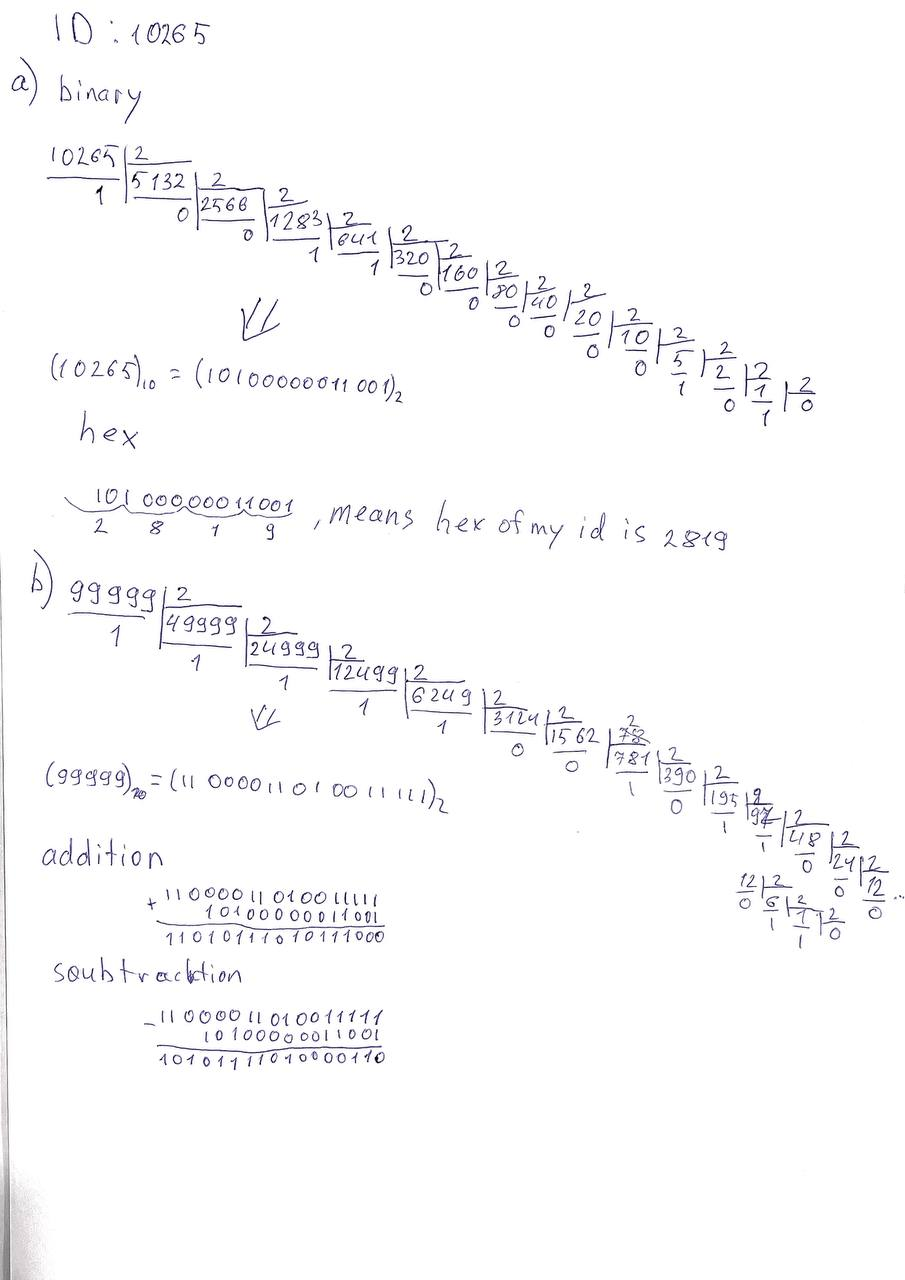 ID : 10265
a) binary
10265 2
1 5132 2
0 2566 2
0 1283 2
1 641 2
1 320 2
0 160 2
0 80 2
0 40 2
0 20 2
0 10 2
0 5 2
1 2 2
0 1 2
1 0
(10265)10 = (10100000011001)2
hex
10100000011001
2 8 1 9 , means hex of my id is 2819
b) 99999 2
1 49999 2
1 24999 2
1 12499 2
1 6249 2
1 3124 2
0 1562 2
0 781 2
1 390 2
0 195 2
1 97 2
1 48 2
0 24 2
0 12
0 ...
12 2
0 6 2
1 1 2
1 0
(99999)10 = (11000011010011111)2
addition
+ 11000011010011111
10100000011001
11010111010111000
soubtracktion
- 11000011010011111
10100000011001
10101111010000110